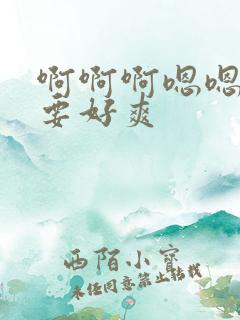 啊啊啊嗯嗯
要好爽
西陌小宝
未经同意禁止转载